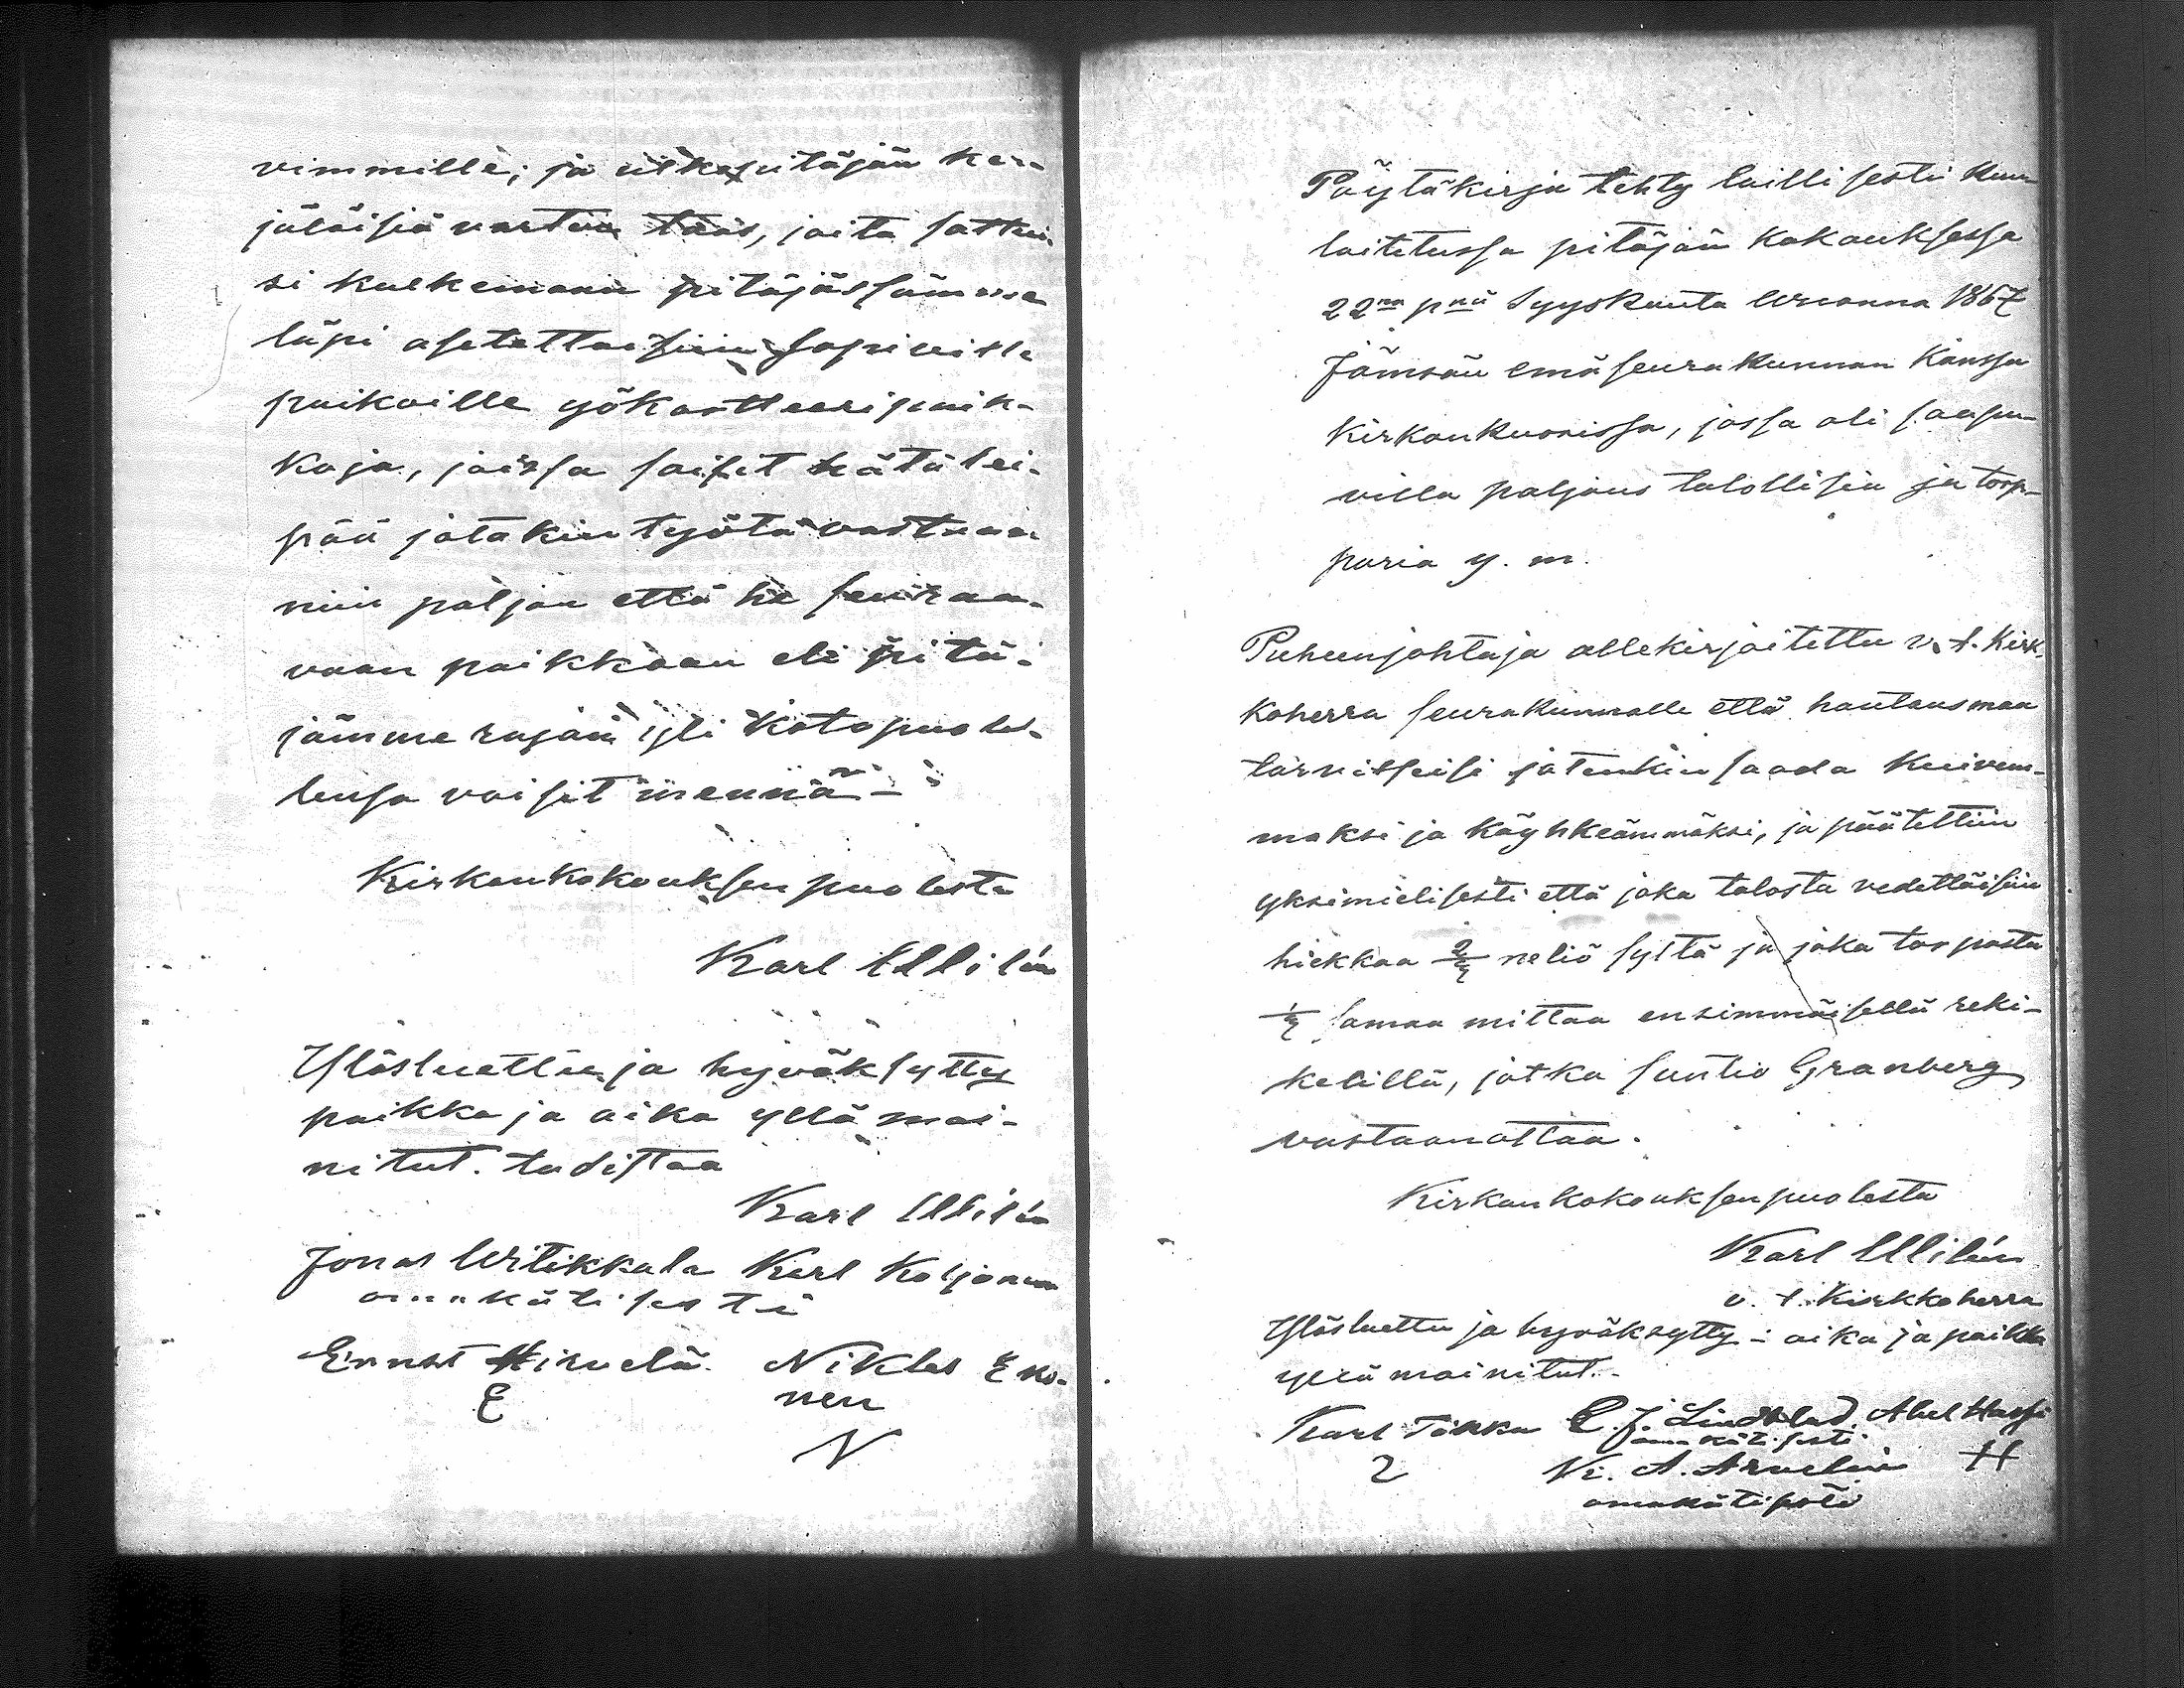 vimmille; ja ulkopitäjän ker-
jäläisiä varten taas, joita sattui-
si kulkemaan pitäjässämme
läpi asetettaisiin sopiville
paikoille yökortteeripaik-
koja, joissa saisit hätälei-
pää jotakin työtä vastaan
niin paljon että he seuraa-
vaan paikkaan eli pitä-
jämme rajan yli kotopuolel-
lensa voisit mennä –
Kirkonkokouksen puolesta
Karl Ullilén
Ylösluettu ja hyväksytty
paikka ja aika yllä mai-
nitut. todistaa
Karl Ullilén
Jonas Witikkala Karl Koljonen
omakätisesti
Ernst Hirvelä. Niklas Eko-
E nen
N
Pöytäkirja tehty laillisesti kuu-
lutetussa pitäjän kokouksessa
22na pnä Syyskuuta Wuonna 1867
Jämsän emäseurakunnan kanssa
Kirkonkuorissa, jossa oli saapu-
villa paljous talollisia ja torp-
paria y. m.
Puheenjohtaja allekirjoitettu v. t. Kirk-
koherra seurakunnalle että hautausmaa
tarvitseisi jotenkin saada kuivem-
maksi ja köyhkeämmäksi, ja päätettiin
yksimielisesti että joka talosta vedettäisiin
hiekkaa 2/4 neliö syltä ja joka torpasta
1/4 samaa mittaa ensimmäisellä reki-
kelillä, jotka suntio Granberg
vastaanottaa.
Kirkonkokouksen puolesta
Karl Ullilén
v. t. Kirkkoherra
Ylösluettu ja hyväksytty – aika ja paikka
yllä mainitut.
Karl Tökku E. J. Lindblad Abel Hassi
omakätisesti
2 Kr. A. Arvelin H
omakätisesti